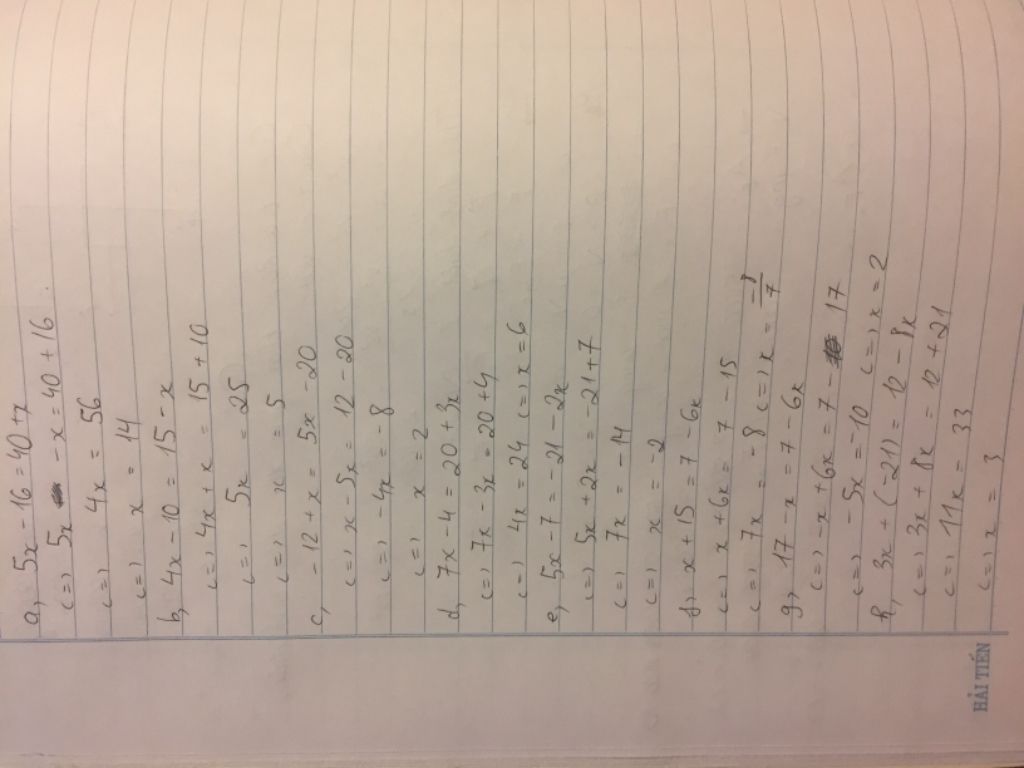 a, 5x - 16 = 40 + x
<=> 5x - x = 40 + 16
<=> 4x = 56
<=> x = 14
b, 4x - 10 = 15 - x
<=> 4x + x = 15 + 10
<=> 5x = 25
<=> x = 5
c, -12 + x = 5x - 20
<=> x - 5x = 12 - 20
<=> -4x = -8
<=> x = 2
d, 7x - 4 = 20 + 3x
<=> 7x - 3x = 20 + 4
<=> 4x = 24 <=> x = 6
e, 5x - 7 = -21 - 2x
<=> 5x + 2x = -21 + 7
<=> 7x = -14
<=> x = -2
f, x + 15 = 7 - 6x
<=> x + 6x = 7 - 15
<=> 7x = -8 <=> x = -8/7
g, 17 - x = 7 - 6x
<=> -x + 6x = 7 - 17
<=> -5x = -10 <=> x = 2
h, 3x + (-21) = 12 - 8x
<=> 3x + 8x = 12 + 21
<=> 11x = 33
<=> x = 3
HẢI TIẾN